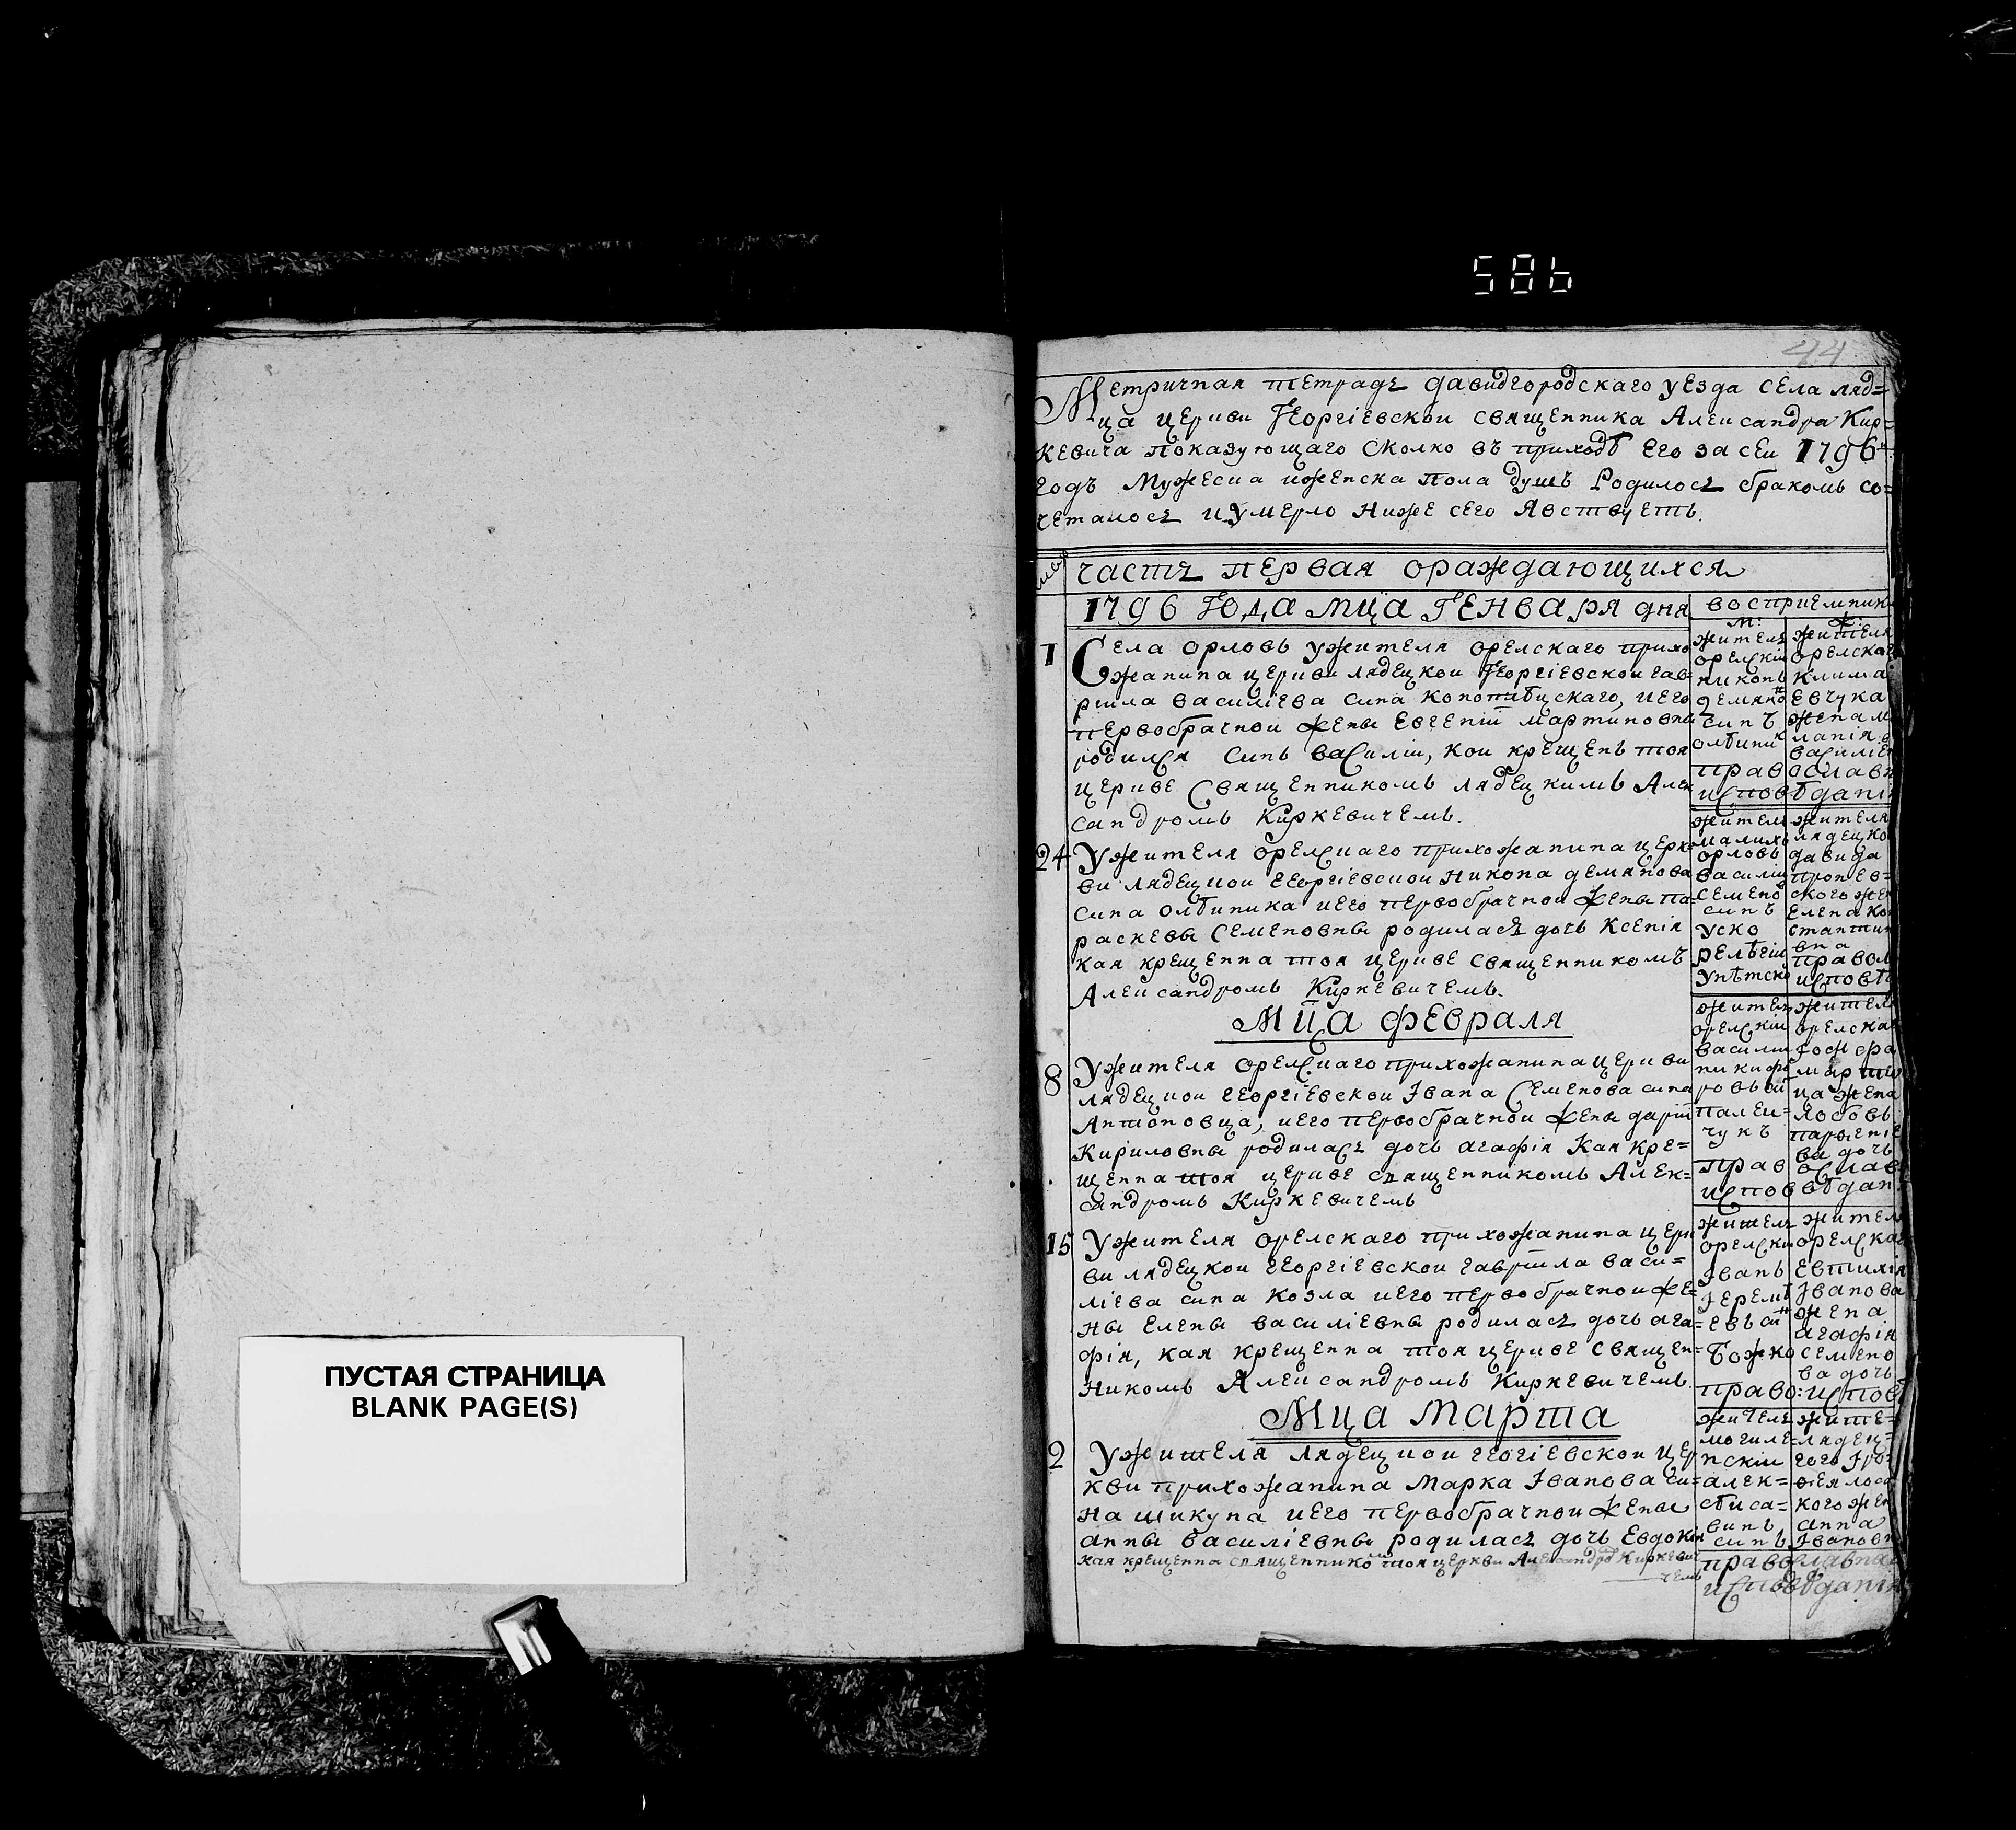 586
44
Метричная тетрадь давидгородскаго уезда села ляд=
ца церкви Георгіевскои священника Александра Кир=
кевича показующаго сколко въ приходѣ его за сеи 1796
годъ мужеска иженска пола душъ родилось бракомъ со=
четалось иумерло ниже сего явствуетъ.
часть первая ораждающихся
1796 Года мца Генваря дня
восприемники
м: ж:
7
Села орловъ ужителя орелскаго прихо
жанина церкви лядецкои Георгіевскои гав=
рыила василіева сина иего
первобрачной жены Евгеніи мартиновны
родился синъ василіи, кои крещенъ тоя
церкве священникомъ лядецкимъ Алек
сандромъ Киркевичемъ.
житель
орелскіи
никонъ
демяно
синъ
олѣник
жителя
орелскаг
клима
евчука
жена м
ланія
василіев
православн
исповѣдані
24
Ужителя орелскаго прихожанина церк
ви лядецкои георгіевскои никона демянова
сина олѣника иего первобрачнои жены па=
раскевы семеновны родилась дочь ксенія
кая крещенна тоя церкве священникомъ
Александромъ Киркевичемъ.
жител
малихъ
орловъ
василіи
семено
синъ
жителя
лядецко
давида
ского жен
елена ко
стантин
вна
правол
исповѣ
Мца февраля
8
Ужителя орелскаго прихожанина церкви
лядецкои георгіевскои Івана Семенова сина
Антоновца, иего первобрачнои жены даріи
Кириловны родилась дочь агафія кая кре=
щенна тоя церкве священникомъ Алек=
сандромъ Киркевичемъ
житель
орелскіи
василіи
никифо
ровъ си
палеи=
чукъ
жител
орелска
ца жена
любовь
парфеніе
ва дочь
православ
исповѣдан
15
Ужителя орелскаго прихожанина церк
ви лядецкои георгіевскои гавріила васи=
ліева сина козла иего первобрачнои же=
ны елены василіевны родилась дочь ага=
фія, кая крещенна тоя церкве священ=
никомъ Александромъ Киркевичемъ.
житель
орелски
Іванъ
Іеремі
евъ си
Божко
жител
орелска
Евтихія
Іванова
жена
агафія
семено
ва дочь
право: испов
Мца Марта
2
Ужителя лядецкои геогіевскои цер
кви прихожанина Марка Іванова си=
на шикула иего первобрачнои жены
анны василіевны родилась дочь Евдокія
кая крещенна священникомъ тоя церкви Александро Киркеви
чемъ
житель
могиле=
нскіи
алек=
сѣи са=
винъ
синъ
жите=
лядец=
кого жен
анна
Івановн
православна
исповѣданія
ПУСТАЯ СТРАНИЦА
BLANK PAGE(S)